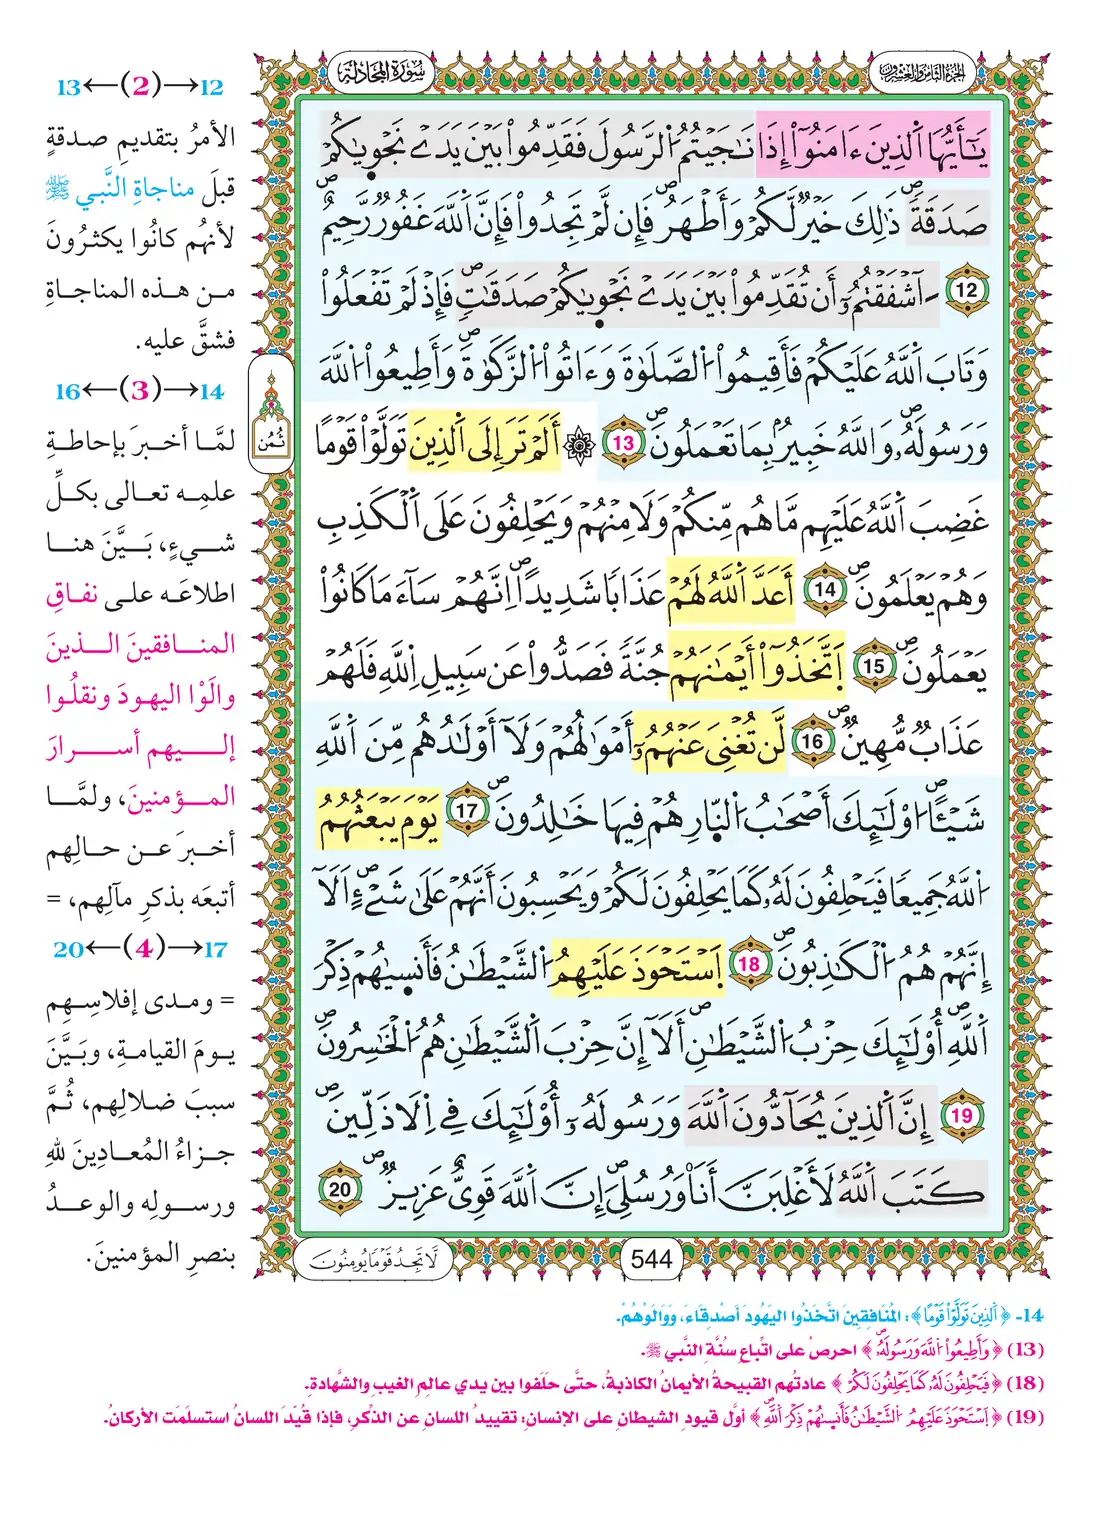 سُورَةُ المُجَادلة
الجزء الثامن والعشرون
يَٰٓأَيُّهَا اَ۬لذِينَ ءَامَنُوٓاْ إِذَا نَٰجَيْتُمُ اُ۬لرَّسُولَ فَقَدِّمُواْ بَيْنَ يَدَےْ نَجْو۪يٰكُمْ
صَدَقَةٗۖ ذَٰلِكَ خَيْرٞ لَّكُمْ وَأَطْهَرُۖ فَإِن لَّمْ تَجِدُواْ فَإِنَّ اَ۬للَّهَ غَفُورٞ رَّحِيمٌۖ
12 ءَآشْفَقْتُمُۥٓ أَن تُقَدِّمُواْ بَيْنَ يَدَےْ نَجْو۪يٰكُمْ صَدَقَٰتٖۖ فَإِذْ لَمْ تَفْعَلُواْ
وَتَابَ اَ۬للَّهُ عَلَيْكُمْ فَأَقِيمُواْ اُ۬لصَّلَوٰةَ وَءَاتُواْ اُ۬لزَّكَوٰةَۖ وَأَطِيعُواْ اُ۬للَّهَ
وَرَسُولَهُۥۖ وَاللَّهُ خَبِيرُۢ بِمَا تَعْمَلُونَۖ 13 ۞ أَلَمْ تَرَ إِلَى اَ۬لذِينَ تَوَلَّوْاْ قَوْماً
غَضِبَ اَ۬للَّهُ عَلَيْهِم مَّا هُم مِّنكُمْ وَلَا مِنْهُمْ وَيَحْلِفُونَ عَلَى اَ۬لْكَذِبِ
وَهُمْ يَعْلَمُونَۖ 14 أَعَدَّ اَ۬للَّهُ لَهُمْ عَذَاباٗ شَدِيداًۖ اِنَّهُمْ سَآءَ مَا كَانُواْ
يَعْمَلُونَۖ 15 اَ۪تَّخَذُوٓاْ أَيْمَٰنَهُمْ جُنَّةٗ فَصَدُّواْ عَن سَبِيلِ اِ۬للَّهِ فَلَهُمْ
عَذَابٞ مُّهِينٞۖ 16 لَّن تُغْنِيَ عَنْهُمُۥٓ أَمْوَٰلُهُمْ وَلَآ أَوْلَٰدُهُم مِّنَ اَ۬للَّهِ
شَيْـٔاًۖ ا۟وْلَٰٓئِكَ أَصْحَٰبُ اُ۬لنّ۪ارِ هُمْ فِيهَا خَٰلِدُونَۖ 17 يَوْمَ يَبْعَثُهُمُ
اُ۬للَّهُ جَمِيعاٗ فَيَحْلِفُونَ لَهُۥ كَمَا يَحْلِفُونَ لَكُمْ وَيَحْسِبُونَ أَنَّهُمْ عَلَىٰ شَےْءٍۖ اَلَآ
إِنَّهُمْ هُمُ اُ۬لْكَٰذِبُونَۖ 18 اَ۪سْتَحْوَذَ عَلَيْهِمُ اُ۬لشَّيْطَٰنُ فَأَنس۪يٰهُمْ ذِكْرَ
اَ۬للَّهِۖ أُوْلَٰٓئِكَ حِزْبُ اُ۬لشَّيْطَٰنِۖ أَلَآ إِنَّ حِزْبَ اَ۬لشَّيْطَٰنِ هُمُ اُ۬لْخَٰسِرُونَۖ
19 إِنَّ اَ۬لذِينَ يُحَآدُّونَ اَ۬للَّهَ وَرَسُولَهُۥٓ أُوْلَٰٓئِكَ فِے اِ۬لَاذَلِّينَۖ
كَتَبَ اَ۬للَّهُ لَأَغْلِبَنَّ أَنَا۠ وَرُسُلِيَۖ إِنَّ اَ۬للَّهَ قَوِيٌّ عَزِيزٞۖ 20
لَّا تَجِدُ قَوْماٗ يُومِنُونَ
544
ثُمُن
13←(2)→12
الأمرُ بتقديمِ صدقةٍ
قبلَ مناجاةِ النَّبي ﷺ
لأنهُم كانُوا يكثرُونَ
من هذه المناجاةِ
فشقَّ عليه.
16←(3)→14
لمَّا أخبرَ بإحاطةِ
علمِه تعالى بكلِّ
شيءٍ، بَيَّنَ هنا
اطلاعَه على نفاقِ
المنافقينَ الذينَ
والَوْا اليهودَ ونقلُوا
إليهم أسرارَ
المؤمنينَ، ولمَّا
أخبرَ عن حالِهم
أتبعَه بذكرِ مآلِهم، =
20←(4)→17
= ومدى إفلاسِهم
يومَ القيامةِ، وبَيَّنَ
سببَ ضلالِهم، ثُمَّ
جزاءُ المُعادِينَ للهِ
ورسولِه والوعدُ
بنصرِ المؤمنينَ.
14- ﴿اَ۬لذِينَ تَوَلَّوْاْ قَوْماً﴾: المُنَافِقِينَ اتَّخَذُوا اليَهُودَ أَصْدِقَاءَ، وَوَالَوْهُمْ.
(13) ﴿وَأَطِيعُواْ اُ۬للَّهَ وَرَسُولَهُۥۖ﴾ احرصْ على اتِّباعِ سُنَّةِ النَّبي ﷺ.
(18) ﴿فَيَحْلِفُونَ لَهُۥ كَمَا يَحْلِفُونَ لَكُمْ﴾ عادتُهم القبيحةُ الأيمانُ الكاذبةُ، حتَّى حلَفوا بين يدي عالمِ الغيبِ والشَّهادةِ.
(19) ﴿اَ۪سْتَحْوَذَ عَلَيْهِمُ اُ۬لشَّيْطَٰنُ فَأَنس۪يٰهُمْ ذِكْرَ اَ۬للَّهِۖ﴾ أوَّل قيودِ الشيطانِ على الإنسانِ: تقييدُ اللسانِ عن الذِّكرِ، فإذا قُيِّدَ اللسانُ استسلمَت الأركانُ.